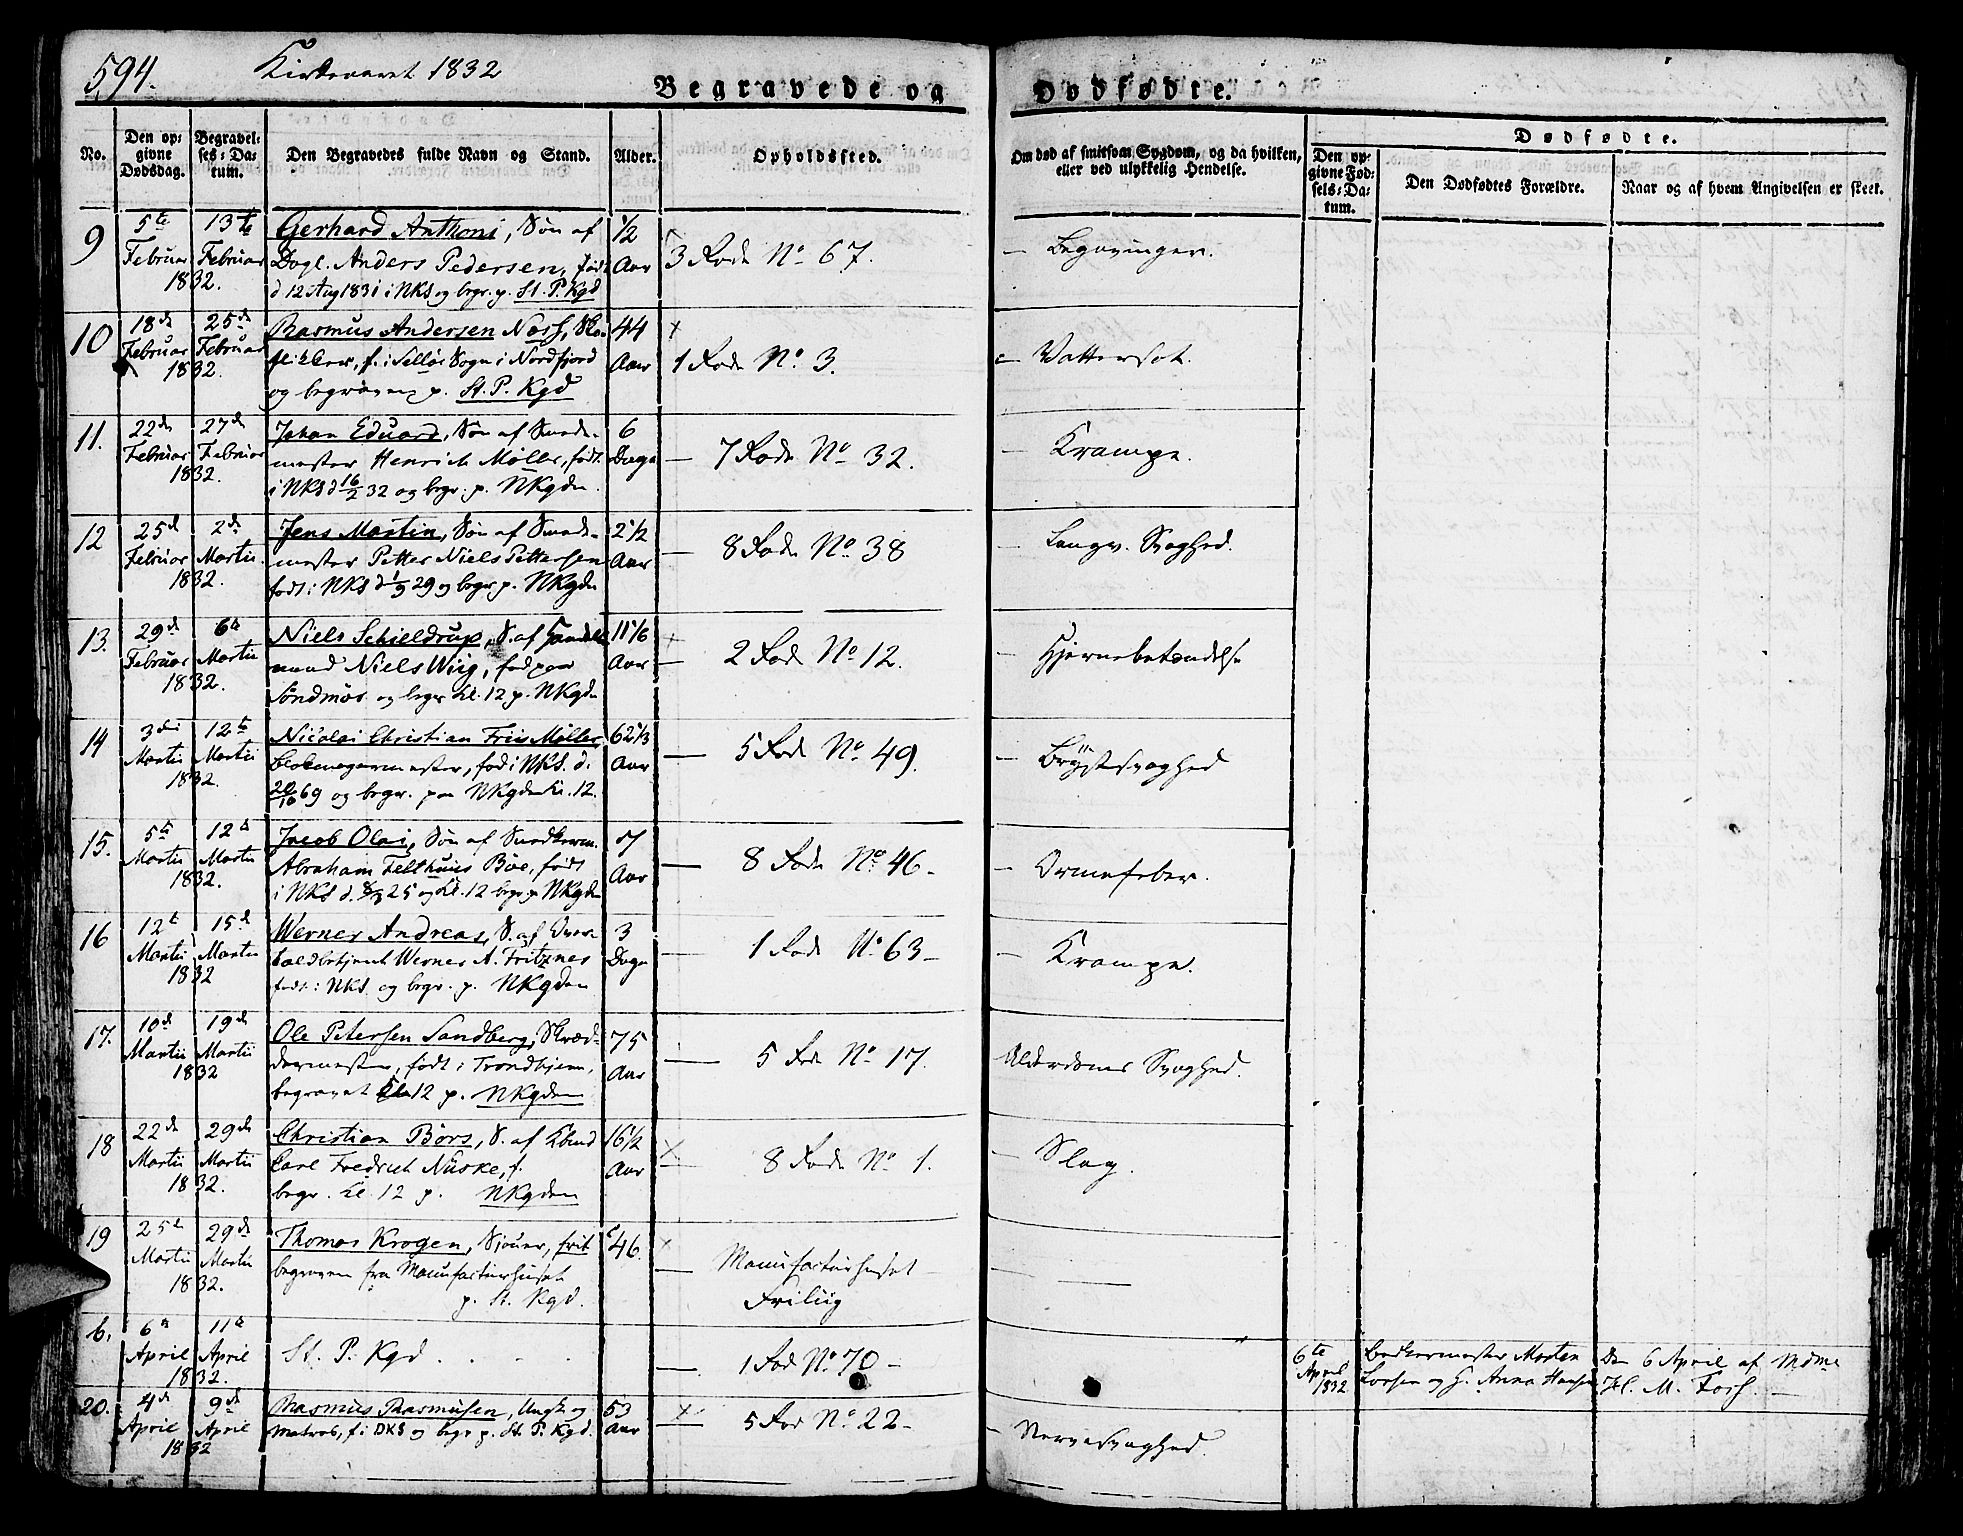 594.
Kirkeaaret 1832
Begravede og
Dødfødte.
No.
Den op-
givne
Dødsdag.
Begravel-
ses-Da-
tum.
Den Begravedes fulde Navn og Stand.
Alder.
Opholdssted.
Om død af smitsom Sygdom, og da hvilken,
eller ved ulykkelig Hendelse.
Dødfødte.
Den op-
givne Fød-
sels-Da-
tum.
Den Dødfødtes Forældre.
Naar og af hvem Angivelsen er skeet.
9
5te Februar 1832.
13te Februar
Gerhard Anthoni, Søn af
Dagl. Anders Pedersen, født
d 12 Aug 1831 i NKS og begr. p. St. P. Kgd
1/2 Aar
3 Rode No 67.
10
18de Februar 1832.
25de Februar
Rasmus Andersen Næss, Sko-
flikker, f. i Selløe Sogn i Nordfjord
og begraven p. St. P. Kgd
44 Aar
1 Rode No 3.
Vattersot.
11.
22de Februar 1832.
27de Februar
Johan Eduard, Søn af Smede-
mester Henrich Møller, født
i NKS d 16/2 32 og begr. p. NKgden.
6 Dage
7 Rode No 32.
Krampe.
12
25de Februar 1832.
2den Martii
Jens Martin, Søn af Smede-
mester Petter Niels Pettersen
født i NKS d 1/9 29 og begr p. NKgden
2 1/2 Aar
8 Rode No 38
Langv. Svaghed.
13.
29de Februar 1832.
6te Martii
Niels Schieldrup, S. af Handels
mand Niels Wiig, fød paa
Søndmør og begr kl. 12 p. NKgden
11 1/6 Aar
2 Rode No 12.
Hjernebetændelse
14
3die Martii 1832.
12te Martii
Nicolai Christian Friis Møller,
Blokmagermester, fød i NKS. d.
20/10 69 og begr. paa NKgden kl. 12.
62 1/3 Aar
5 Rode No 49.
Brÿstsvaghed
15.
5te Martii 1832.
12te Martii
Jacob Olai, Søn af Snedkerm.
Abraham Felthuus Bøe, født
i NKS d. 8/3 25 og kl. 12 begr. p NKgden
7 Aar
8 Rode No 46
Ormefeber.
16
12te Martii 1832
15de Martii
Werner Andreas, S. af Over
toldbetjent Werner A. Fritzner
født i NKS. og begr. p. NKgden
3 Dage
1 Rode No 63
Krampe.
17.
10de Martii 1832
19de Martii
Ole Petersen Sandberg, Skræd-
dermester, født i Trondhjem,
begravet kl 12 p. NKgden
75 Aar
5 Rode No 17.
Alderdoms Svaghed.
18
22de Martii 1832.
29de Martii
Christian Børs, S. af Kbmd
Carl Fredrich Nüske, f.
begr. kl. 12 p. NKgden
16 1/2 Aar
8 Rode No 1.
Slag.
19
25de Martii 1832.
29de Martii
Thomas Krogen, Sjouer, frit
begraven fra Manufacturhuset
p. St. Kgd.
46.
Manufacturhuset
6.
6te April 1832.
11te April
St. P. Kgd.
1 Rode No 70
6te April 1832
Bedkermester Morten
Larsen og H. Anna Hansen
Den 6 April af Mdme
M. Foss.
20.
4de April 1832
9de April
Rasmus Rasmusen, Ungk. og
matros, f. i DKS og begr p. St. P. Kgd.
53 Aar
5 Rode No 22
Nervesvaghed.